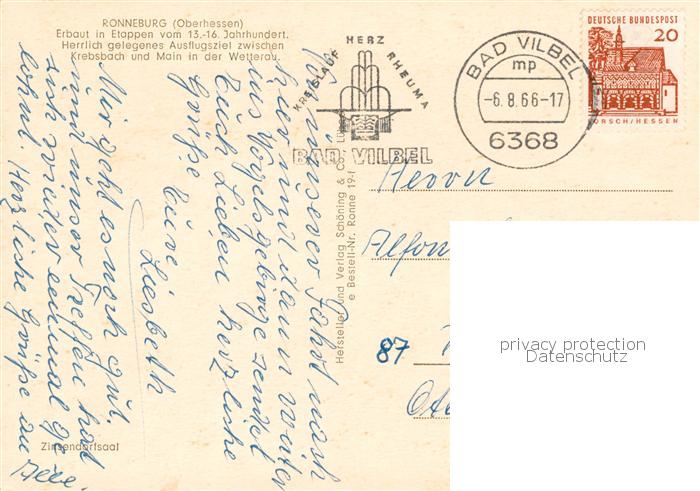 RONNEBURG (Oberhessen)
Erbaut in Etappen vom 13.-16. Jahrhundert.
Herrlich gelegenes Ausflugsziel zwischen
Krebsbach und Main in der Wetterau.
KREISLAUF HERZ RHEUMA
BAD VILBEL
BAD VILBEL
mp
-6.8.66-17
6368
DEUTSCHE BUNDESPOST
20
LORSCH/HESSEN
Auf unserer Fahrt nach
hier und dann weiter
ins Vogelsgebirge sendet
Euch Lieben herzliche
Grüße
Eure
Liesbeth
Mir geht es noch gut.
und unser Treffen hat
sich wieder einmal ge-
lohnt. Herzliche Grüße an
Alle.
Hersteller und Verlag Schöning & Co
Bestell-Nr. Ronne 19
Herrn
Alfon
87
privacy protection
Datenschutz
Zinsendorfsaal